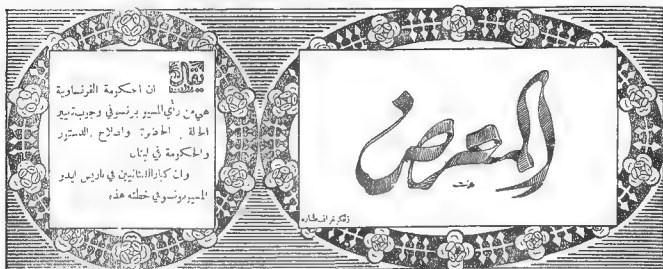 المعرض
زنكوغراف طباره
يقال
ان الحكومة الفرنساوية
هي من رأي المسيو برنسو في وجوب تغيير
الحالة الحاضرة واصلاح الدستور
والحكومة في لبنان
وان كبار اللبنانيين في باريس ايدو
المسيو بونسو في خطته هذه